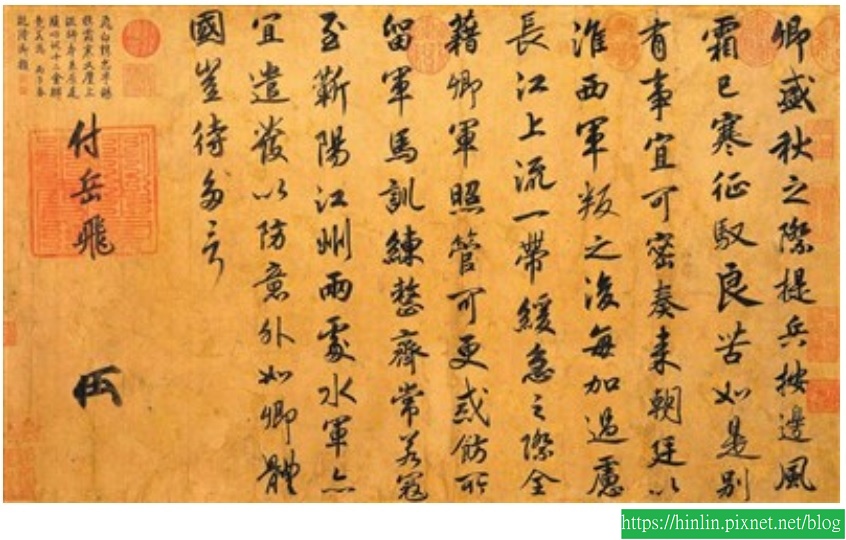 卿盛秋之際提兵按邊風
霜已寒征馭良苦如是別
有事宜可密奏來朝廷以
淮西軍叛之後每加過慮
長江上流一帶緩急之際全
藉卿軍照管可更戒飭所
留軍馬訓練整齊常若寇
至蘄陽江州兩處水軍亦
宜遣發以防意外如卿體
國豈待多言
付岳飛
https://hinlin.pixnet.net/blog